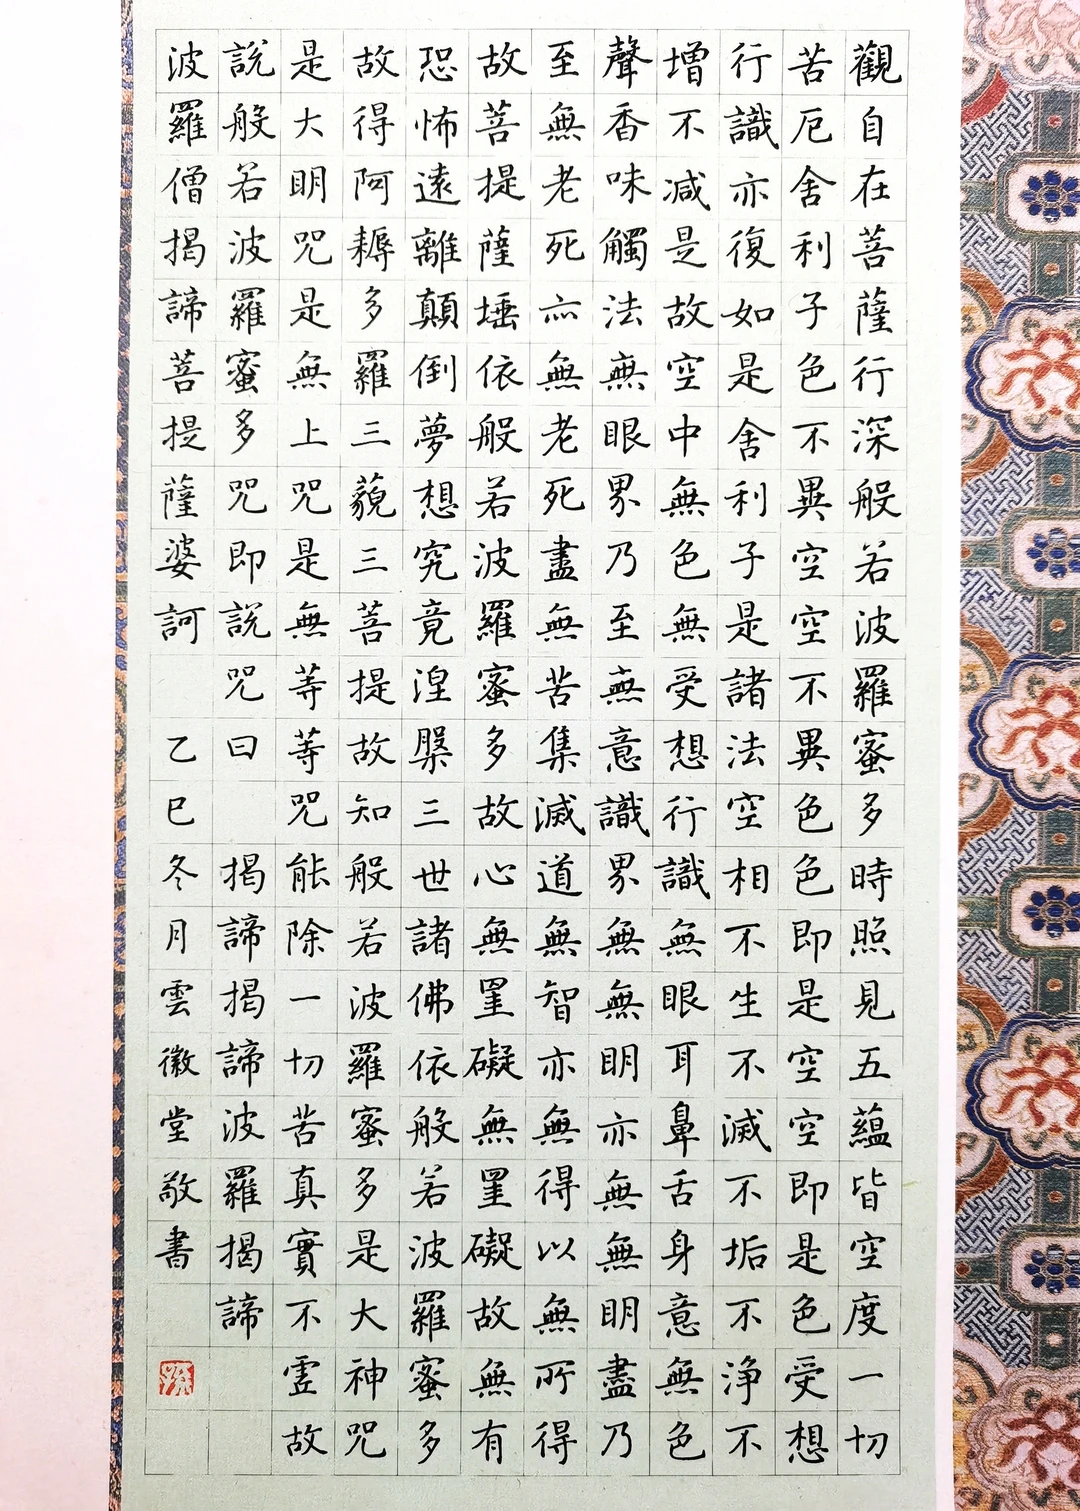 觀自在菩薩行深般若波羅蜜多時照見五蘊皆空度一切
苦厄舍利子色不異空空不異色色即是空空即是色受想
行識亦復如是舍利子是諸法空相不生不滅不垢不淨不
增不减是故空中無色無受想行識無眼耳鼻舌身意無色
聲香味觸法無眼界乃至無意識界無無明亦無無明盡乃
至無老死亦無老死盡無苦集滅道無智亦無得以無所得
故菩提薩埵依般若波羅蜜多故心無罣礙無罣礙故無有
恐怖遠離顛倒夢想究竟涅槃三世諸佛依般若波羅蜜多
故得阿耨多羅三藐三菩提故知般若波羅蜜多是大神咒
是大明咒是無上咒是無等等咒能除一切苦真實不虛故
說般若波羅蜜多咒即說咒曰 揭諦揭諦波羅揭諦
波羅僧揭諦菩提薩婆訶 乙巳冬月雲徽堂敬書